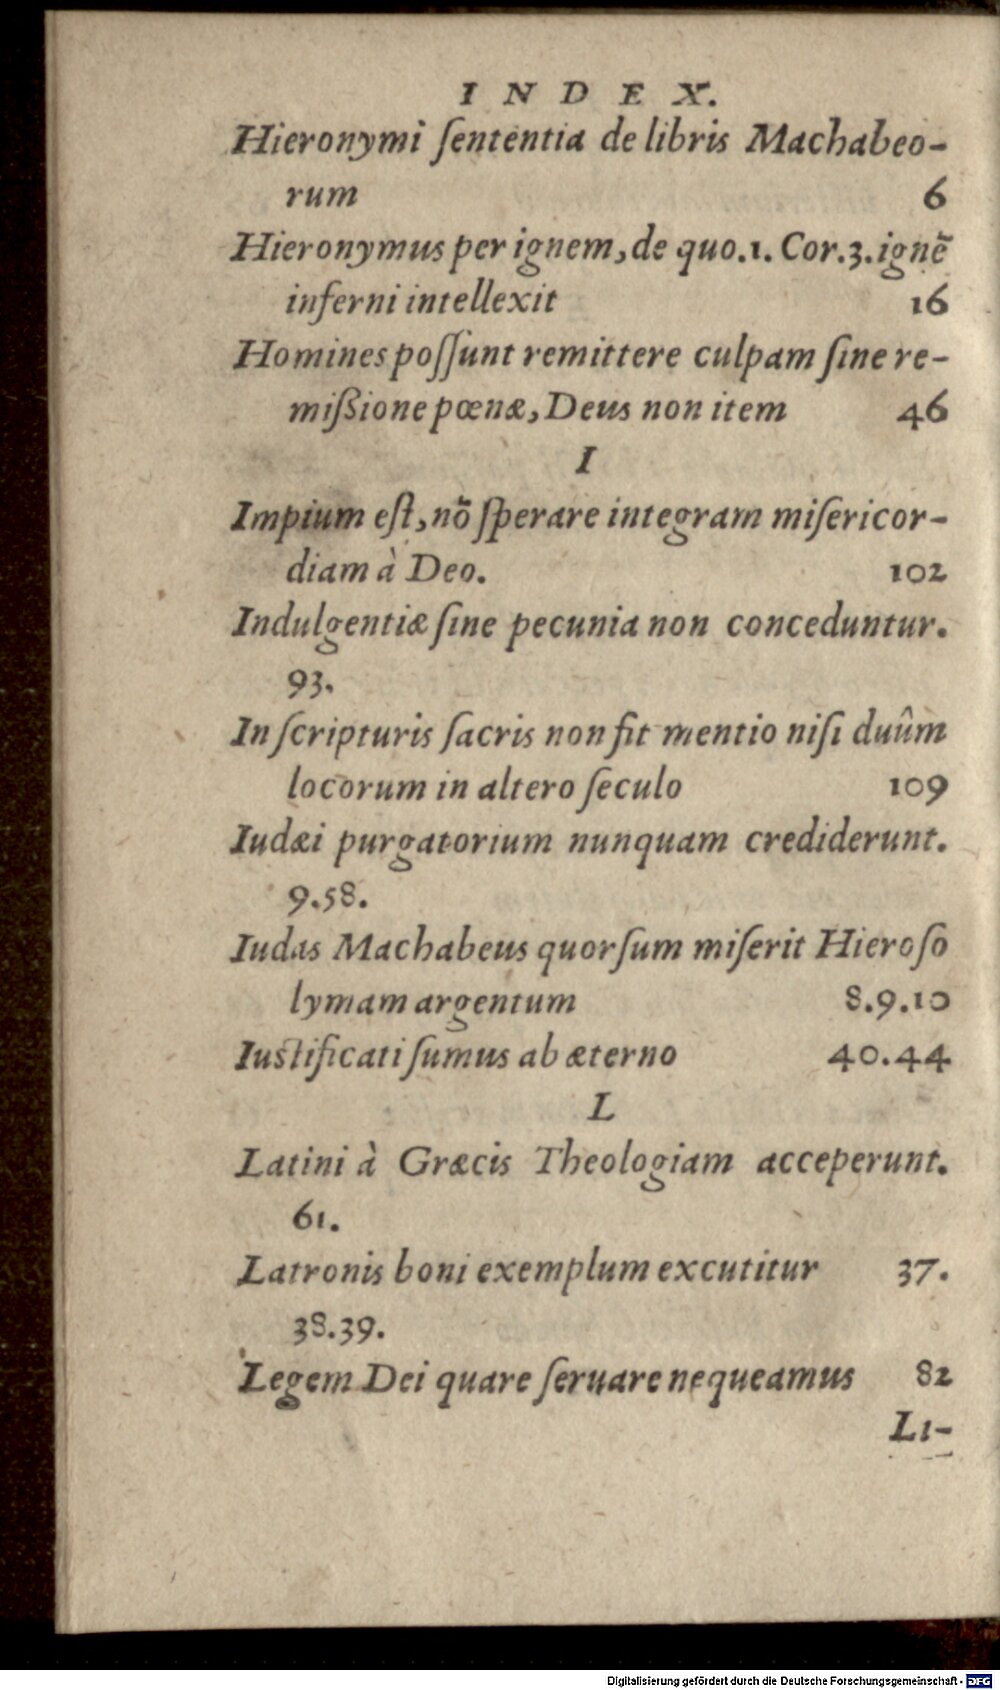 INDEX.
Hieronymi ſententia de libris Machabeo-
rum 6
Hieronymus per ignem, de quo. 1. Cor. 3. ignẽ
inferni intellexit 16
Homines poſſunt remittere culpam ſine re-
mißione pœnæ, Deus non item 46
I
Impium eſt, nõ ſperare integram miſericor-
diam à Deo. 102
Indulgentiæ ſine pecunia non conceduntur.
93.
In ſcripturis ſacris non fit mentio niſi duûm
locorum in altero ſeculo 109
Iudæi purgatorium nunquam crediderunt.
9.58.
Iudas Machabeus quorſum miſerit Hieroſo
lymam argentum 8.9.10
Iuſtificati ſumus ab æterno 40.44
L
Latini à Græcis Theologiam acceperunt.
61.
Latronis boni exemplum excutitur 37.
38.39.
Legem Dei quare ſeruare nequeamus 82
LI-
Digitalisierung gefördert durch die Deutsche Forschungsgemeinschaft - DFG